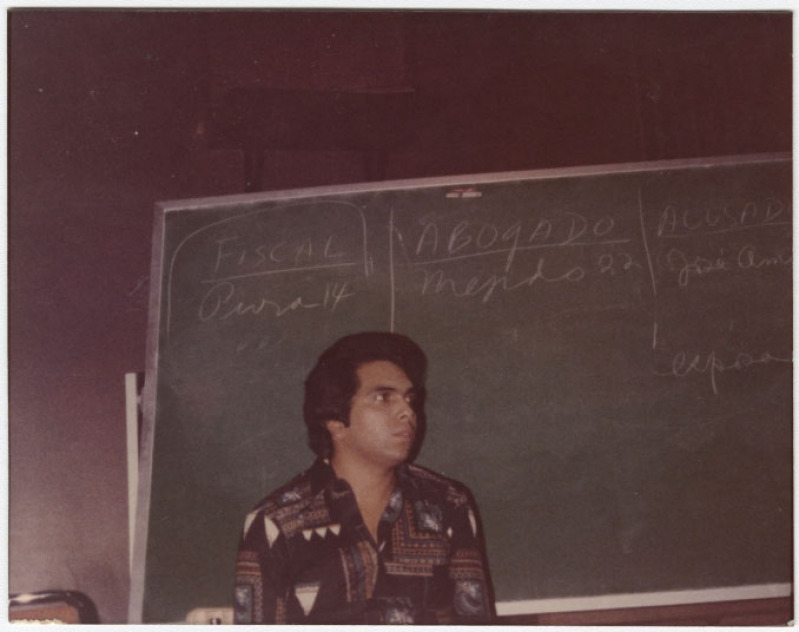 FISCAL
14
ABOGADO
Mejido 22
ACUSAD
José Am
esposa